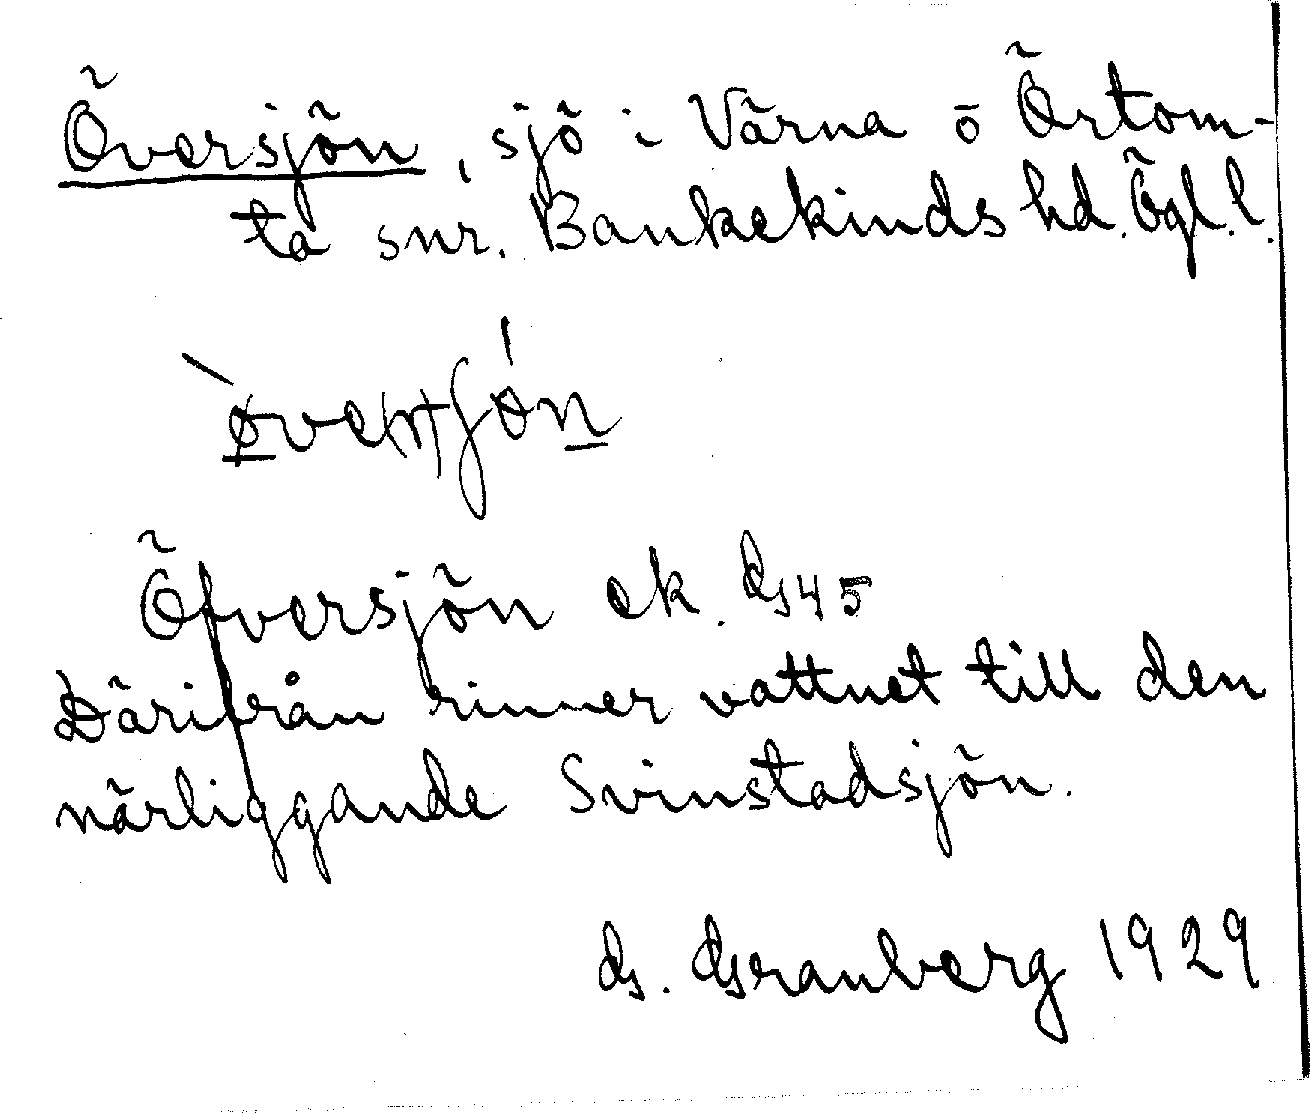 Översjön, sjö i Värna o Örtom-
ta snr. Bankekinds hd. Ögl. l.
Öfversjön ek. G45
Därifrån rinner vattnet till den
närliggande Svinstadsjön.
G. Granberg 1929